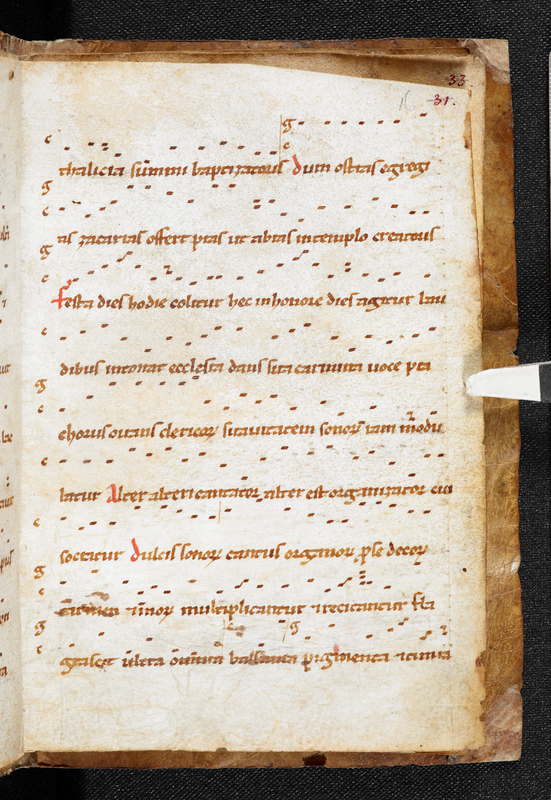 33.
31.
g
c c
thalicia sūmmi baptizatoris Dum ostias egregi
g
c
as zacarias offert ptas ut abias in templo creatoris
g
c
Festa dies hodie colitur hec in honore dies agitur lau
c
dibus intonat ecclesia dans sua carmina uoce
g
c
chorus ouans clericoꝝ suauitatem sonoꝝ iam modu
c
latur Alter alteri cantatoꝝ alter est organizatoꝝ cui
c
sociatur Dulcis sonoꝝ cantus organoꝝ ꝑ se decoꝝ
g
c
multiplicantur ⁊ recitantur
g c g
c
ultra omnia ballama pigmenta ⁊